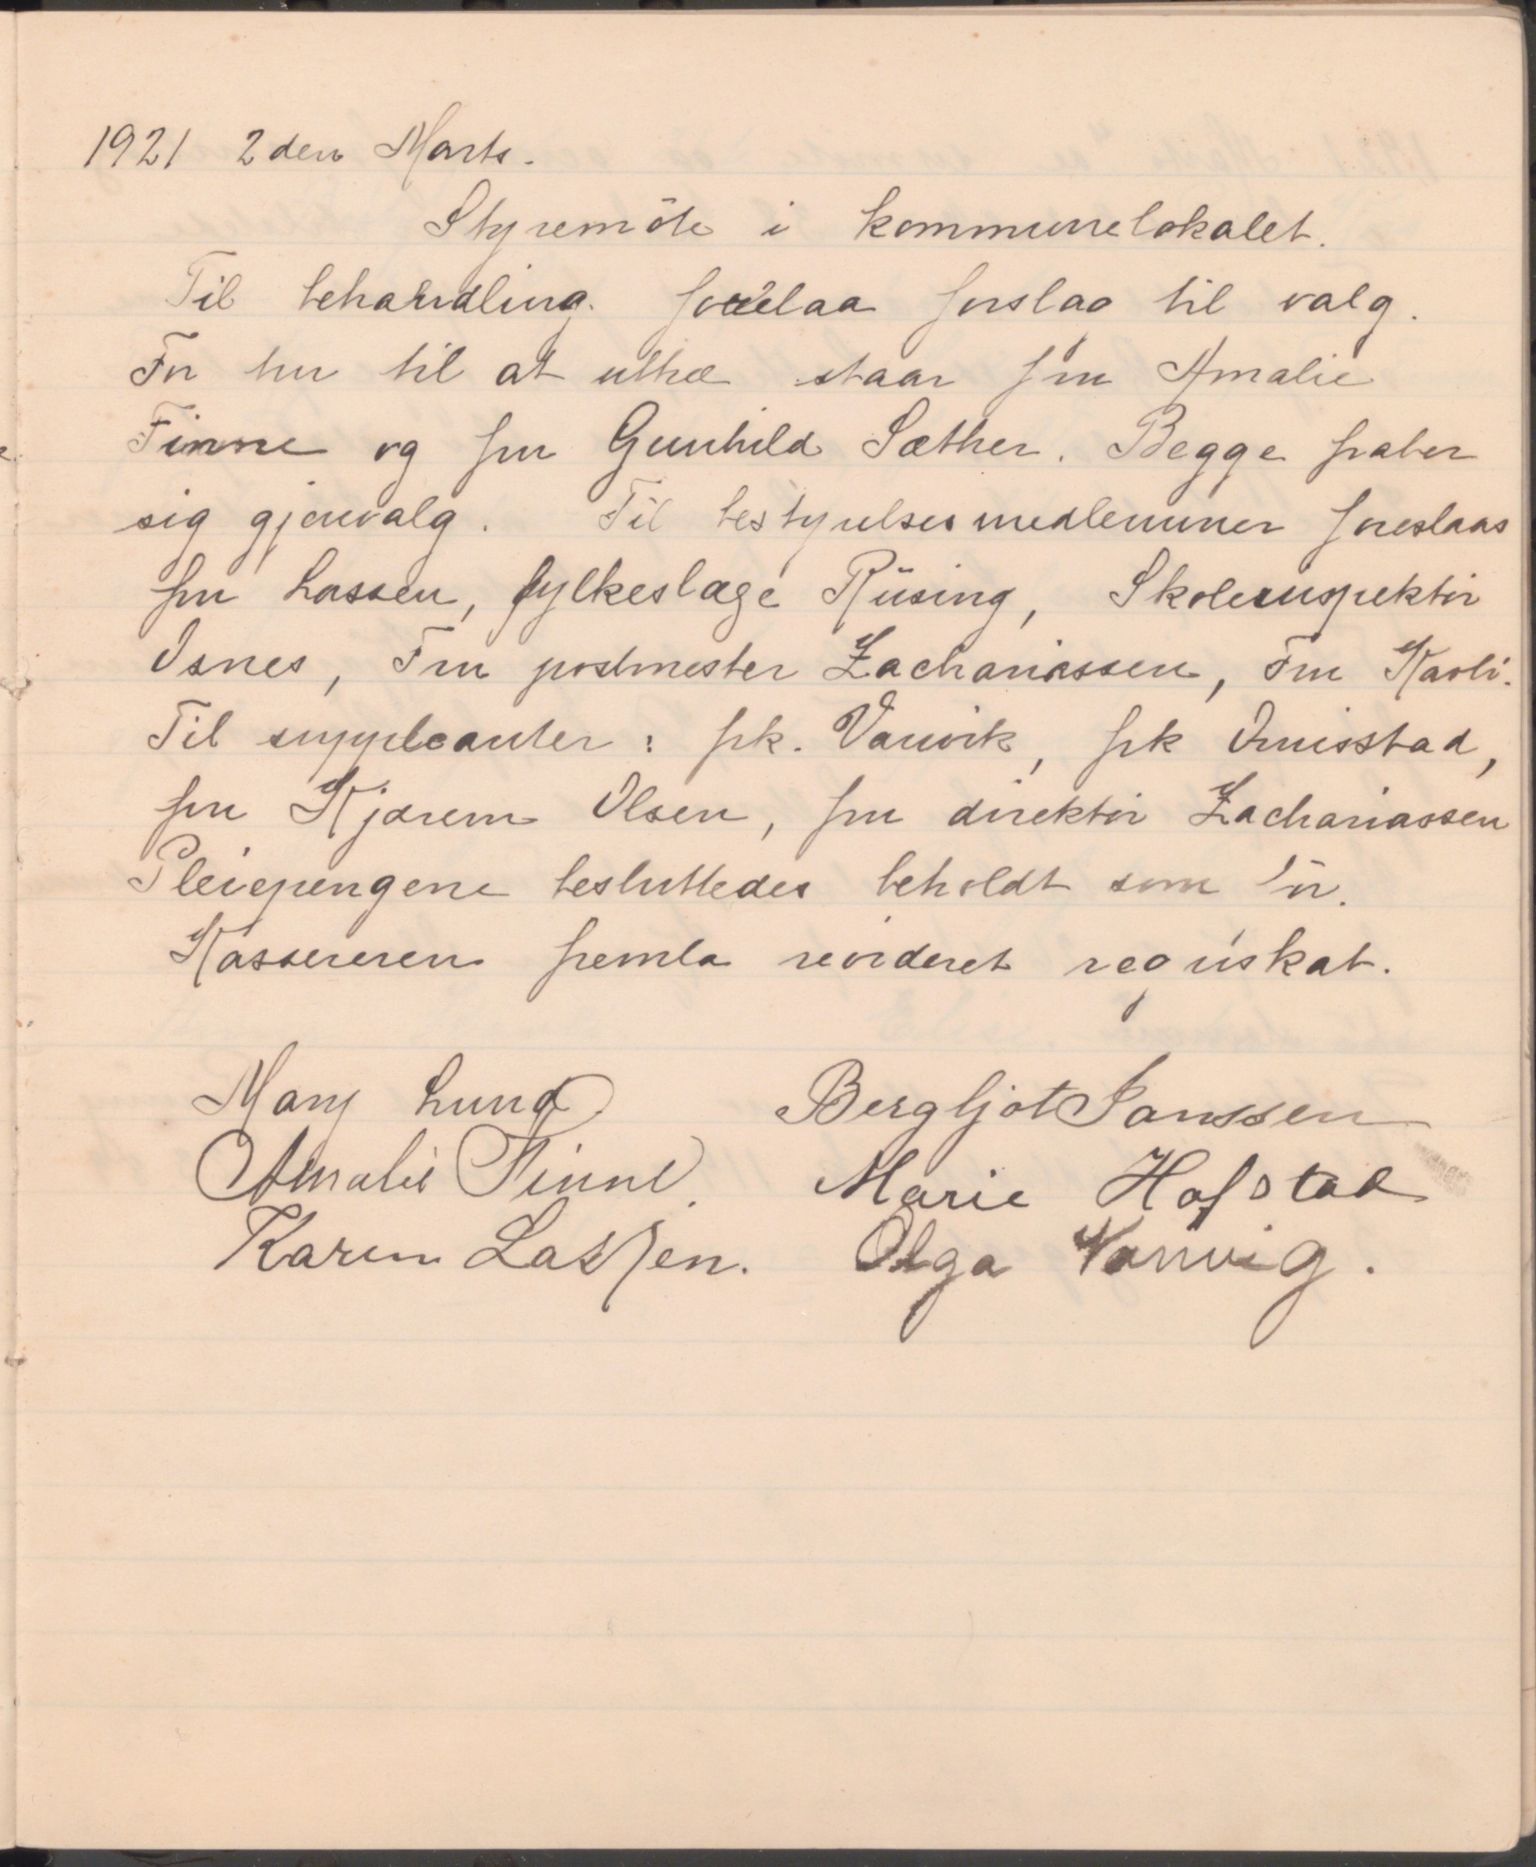 1921 2den Marts.
Styremöte i kommunelokalet.
Til behandling forelaa forslag til valg.
For tur til at uttræ staar fru Amalie
Finne og fru Gunhild Sæther. Begge fraber
sig gjenvalg. Til bestyrelsesmedlemmer foreslaas
fru Lassen, fylkeslæge Rüsing, Skoleinspektör
Isnes, Fru postmester Zachariassen, Fru Kavli.
Til suppleanter: frk. Vanvik, frk
fru Kjærem Olsen, fru direktör Zachariassen
Pleiepengene besluttedes beholdt som för.
Kassereren fremla revideret regnskat.
Mary Lund Bergljot Janssen
Amalie Finne Marie Hofstad
Karen Lassen. Olga Vanvig.